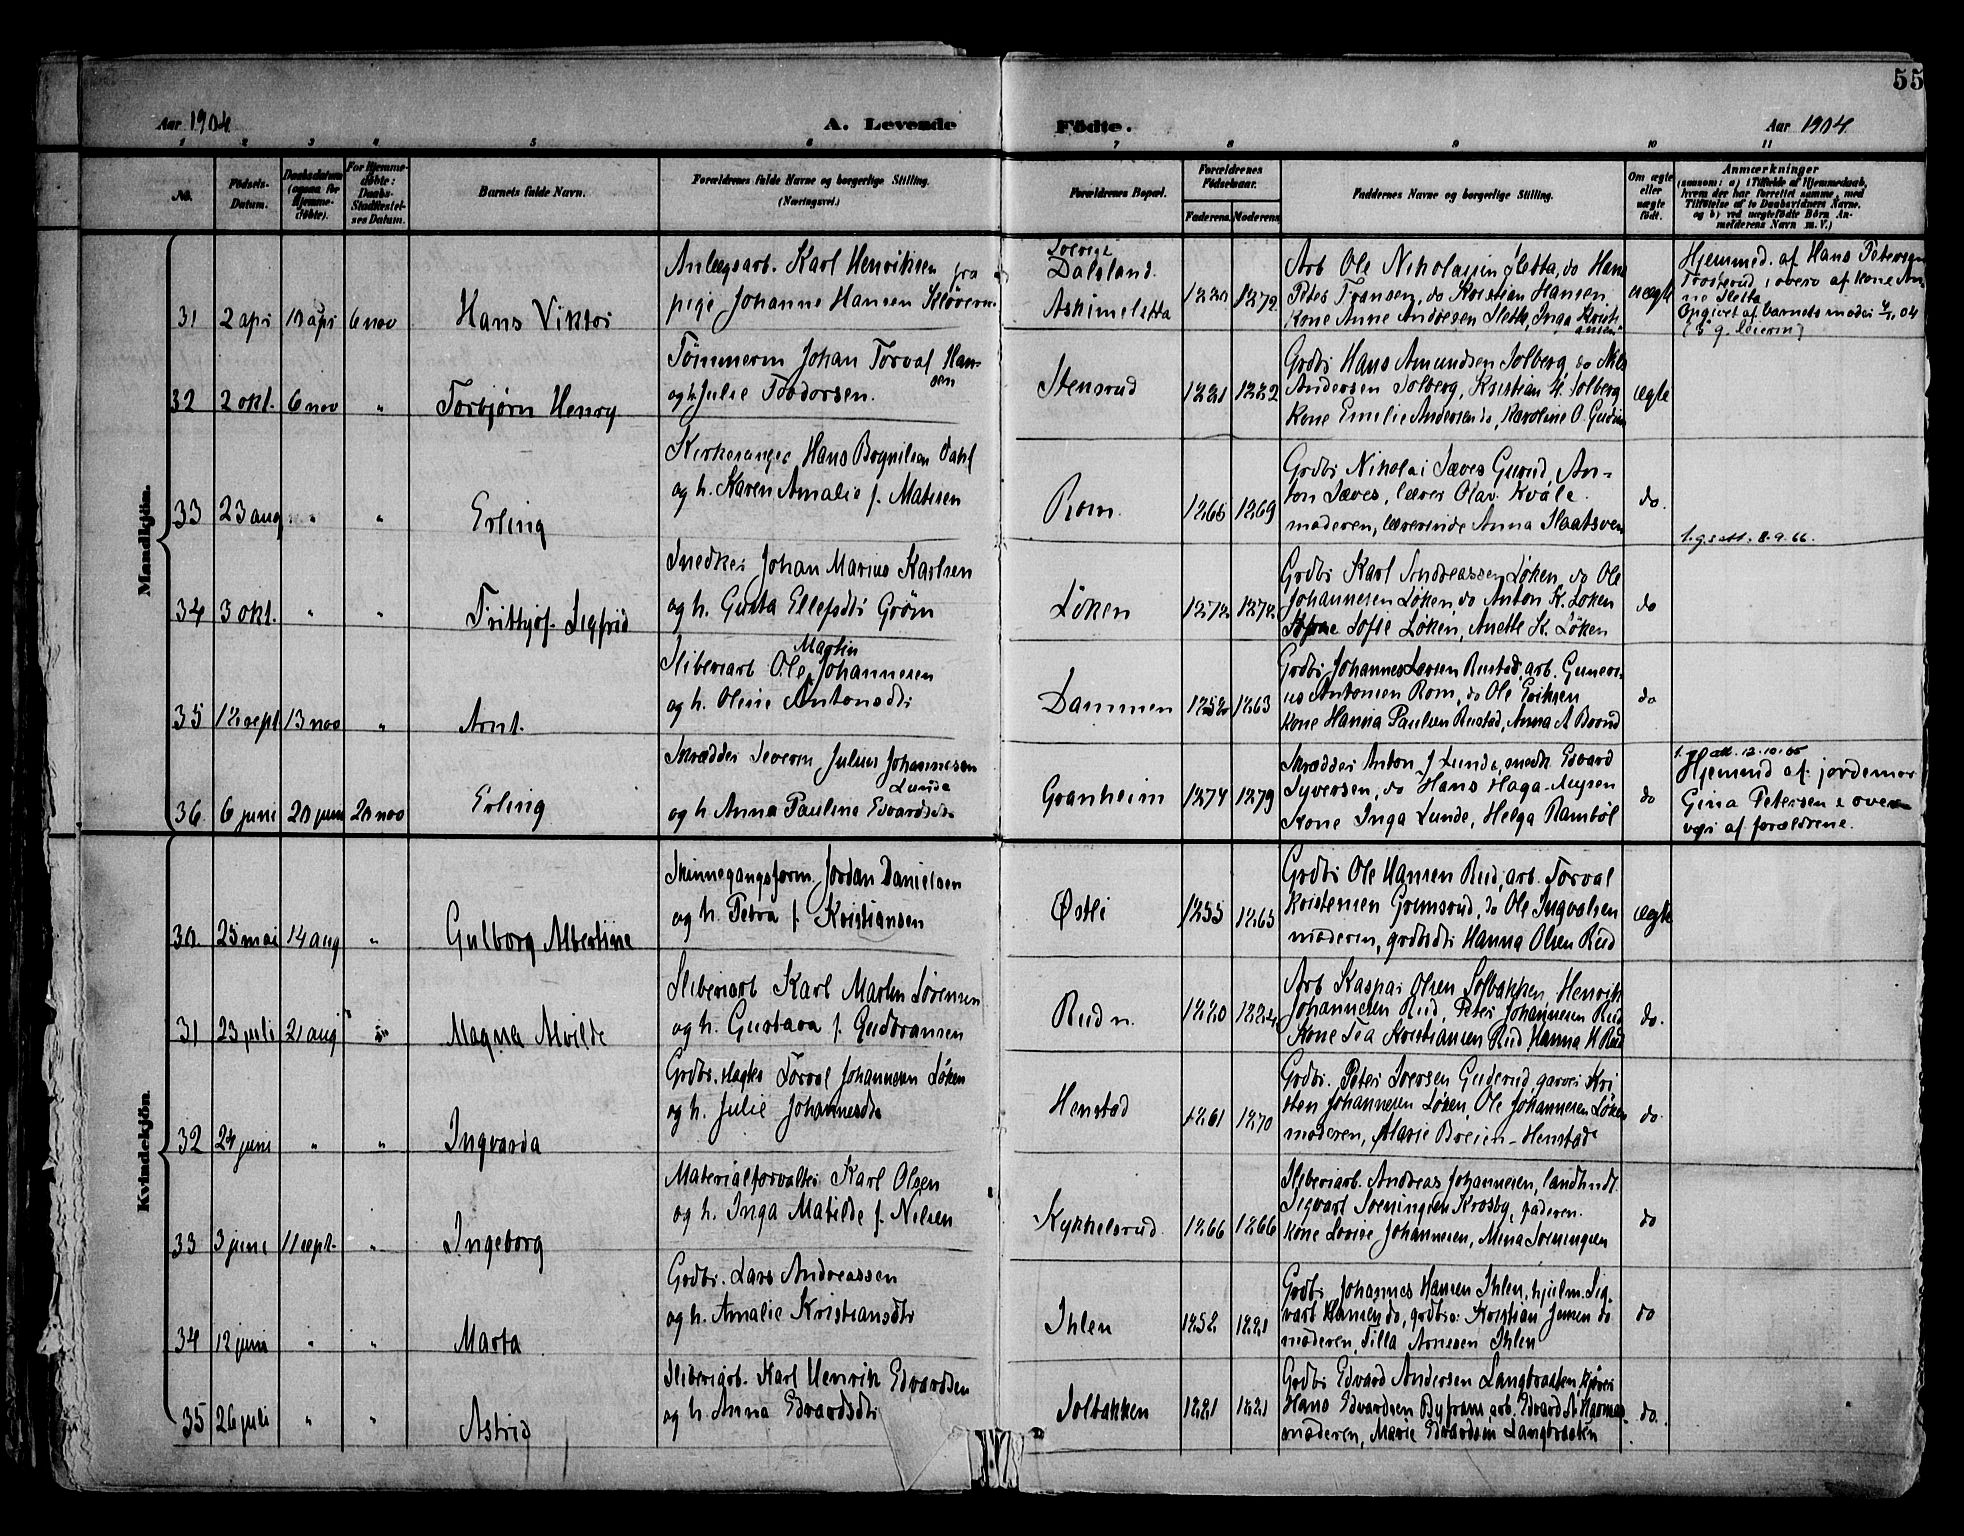 55
Aar 1904
A. Levende
Födte.
Aar 1904.
1 2 3 4 5 6 7 8 9 10 11
No.
Födsels-Datum.
Daabsdatum (ogsaa for Hjemmedöbte).
For Hjemmedöbte: Daabs-Stadfæstelses Datum.
Barnets fulde Navn.
Forældrenes fulde Navne og borgerlige Stilling. (Næringsvei.)
Forældrenes Bopæl.
Forældrenes Födselsaar.
Faderens Moderens
Faddernes Navne og borgerlige Stilling.
Om ægte eller uægte födt.
Anmærkninger
(saasom: a) i Tilfælde af Hjemmedaab, hvem der har forrettet samme, med Tilföielse af to Daabsvidners Navne. og b) ved uægtefödte Börn Anmelderens Navn m. V.)
Mandkjön.
31 2 apri 10 apri 6 nov Hans Viktor
Anlægsarb. Karl Henriksen fra
pige Johanne Hansen
Sverige
Dalsland
Askimsletta
1872
Arb Ole Nikolaisen Sletta, do Hans
Peter Fransen, do Kristian Hansen.
Kone Anne Andresen Sletta, Inga Kristiansen
uægte
Hjemmed. af Hans Petersen
overv af kone Anne Sletta
Opgivet af barnets moder
32 2 okt. 6 nov " Torbjørn Henry
Tømmerm Johan Torval Hansen
og h. Julie Todorsen.
Stensrud
1881 1882
Grdbr Hans Amundsen Solberg, do Nils
Andersen Solberg, Kristian H. Solberg
Kone Emilie Andersen do, Karoline O. Gudim
ægte
33 23 aug " " Erling
Kirkesanger Hans Bognilsen Dahl
og h. Karen Amalie f. Matisen
Rom.
1865 1869
Grdbr Nikolai Jæves Gurud, An-
ton Jæves, lærer Olav Kvåle.
moderen, lærerinde Anna Slaatsveen
do.
34 3 okt. " " Fritthjof Sigfrid
Snedker Johan Marius Karlsen
og h. Gusta Ellefsdtr Grøm
Løken
1872 1872
Grdbr Karl Andreassen Løken, do Ole
Johannesen Løken, do Anton K. Løken
Sofie Løken, Anette K. Løken
do
1. g. att. 8.9.66.
35 18 sept 13 nov " Arnt.
Sliberiarb Ole Martin Johannesen
og h. Oline Antonsdtr
Dammen
1858 1863
Grdbr Johannes Larsen Rustad, arb. Gunerius
Antonsen Rom, do Ole Eriksen
Kone Hanna Paulsen Rustad, Anna A
do
36. 6 juni 20 juni 20 nov Erling
Skrædder Severin Julius Johannesen
Lunde
og h. Anna Pauline Edvardsdtr
Granheim
1874 1879
Skrædder Anton J Lunde, Edvard
Syversen, do Hans Haga-Mysen
Kone Inga Lunde, Helga Rambøl
do
att. 12.10.65
Hjemmd af jordemor
Gina Petersen & over-
vær af forældrene.
Kvindekjön.
30. 25 mai 14 aug " Gulborg Albertine
Skinnegangsform. Jordan Danielsen
og h. Petra f. Kristiansen
Østli
1855 1865
Grdbr Ole Hansen Rud, arb. Torval
Kristensen Grimsrud, do Ole Ingvalsen
moderen, grdbdtr Hanna Olsen Rud
ægte
31 23 juli 21 aug " Magna Alvilde
Sliberiarb Karl Martin Sørensen
og h. Gustava f. Gudbransen
Rud n.
1880 1884
Arb Kaspar Olsen Solbakken, Henrik
Johannesen Rud, Peter Johannesen Rud
Kone Tea Kristiansen Rud, Hanna K Rud
do.
32 24 juni " " Ingvarda
Grdbr. Torval Johannesen Løken
og h. Julie Johannesdtr
Henstad
1861 1870
Grdbr. Peter Iversen Guderud, garver Kri
sten Johannesen Løken, Ole Johannesen Løken
moderen, Marie Breien-Henstad
do.
33 3 juni 11 sept. " Ingeborg
Materialforvalter Karl Olsen
og h. Inga Matilde f. Nilsen
Kykkelsrud
1866 1866
Sliberiarb. Andreas Johannesen, landhndl.
Sigvart Svenningsen Krosby, faderen.
kone Lovise Johannesen, Mina Svenningsen
do
34 12 juni " " Marta
Grdbr. Lars Andreassen
og h. Amalie Kristiansdtr
Ihlen
1852 1881
Grdbr. Johannes Hansen Ihlen, hjulm. Sig-
vart Hansen do, grdbrs: Kristian Jensen do
moderen, Tilla Arnesen Ihlen
do
35 26 juli " " Astrid
Sliberiarb. Karl Henrik Edvardsen
og h. Anna Edvardsdtr
Solbakken
1881 1881
Grdbr Edvard Andersen Langbraaten, kjører
Hans Edvardsen Byfram, arb. Edvard
moderen, Marie Edvardsen Langbraaten
do.